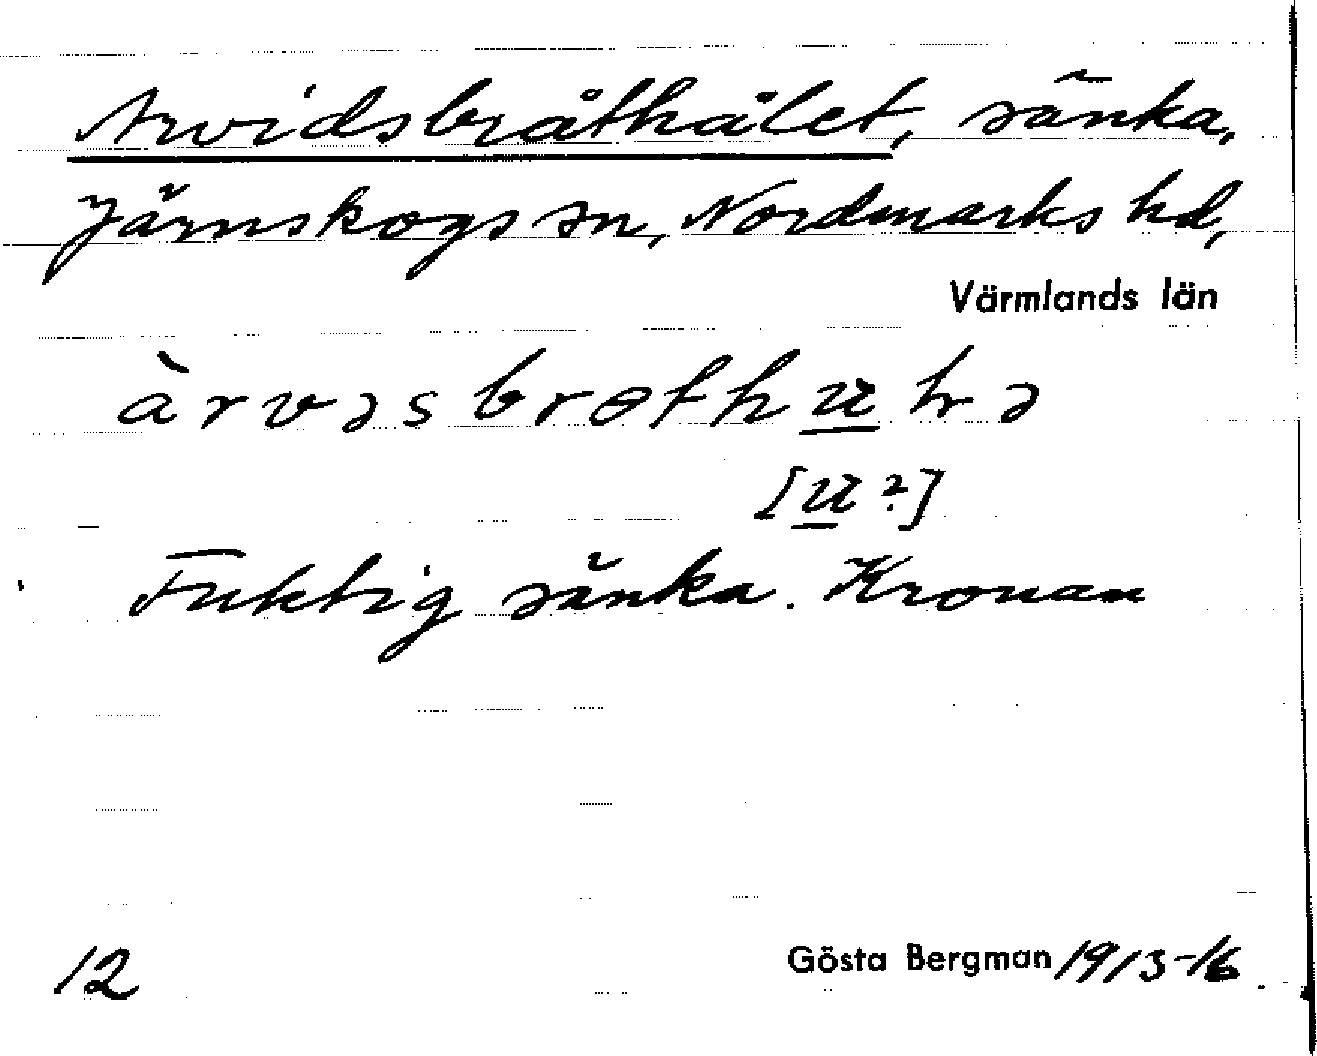 Arvidsbråthålet, sänka,
Järnskogs sn, Nordmarks hd,
Värmlands län
àrvəsbrɵthu̲ɽə
[u̲?]
Fuktig sänka. Kronan
12
Gösta Bergman 1913-16